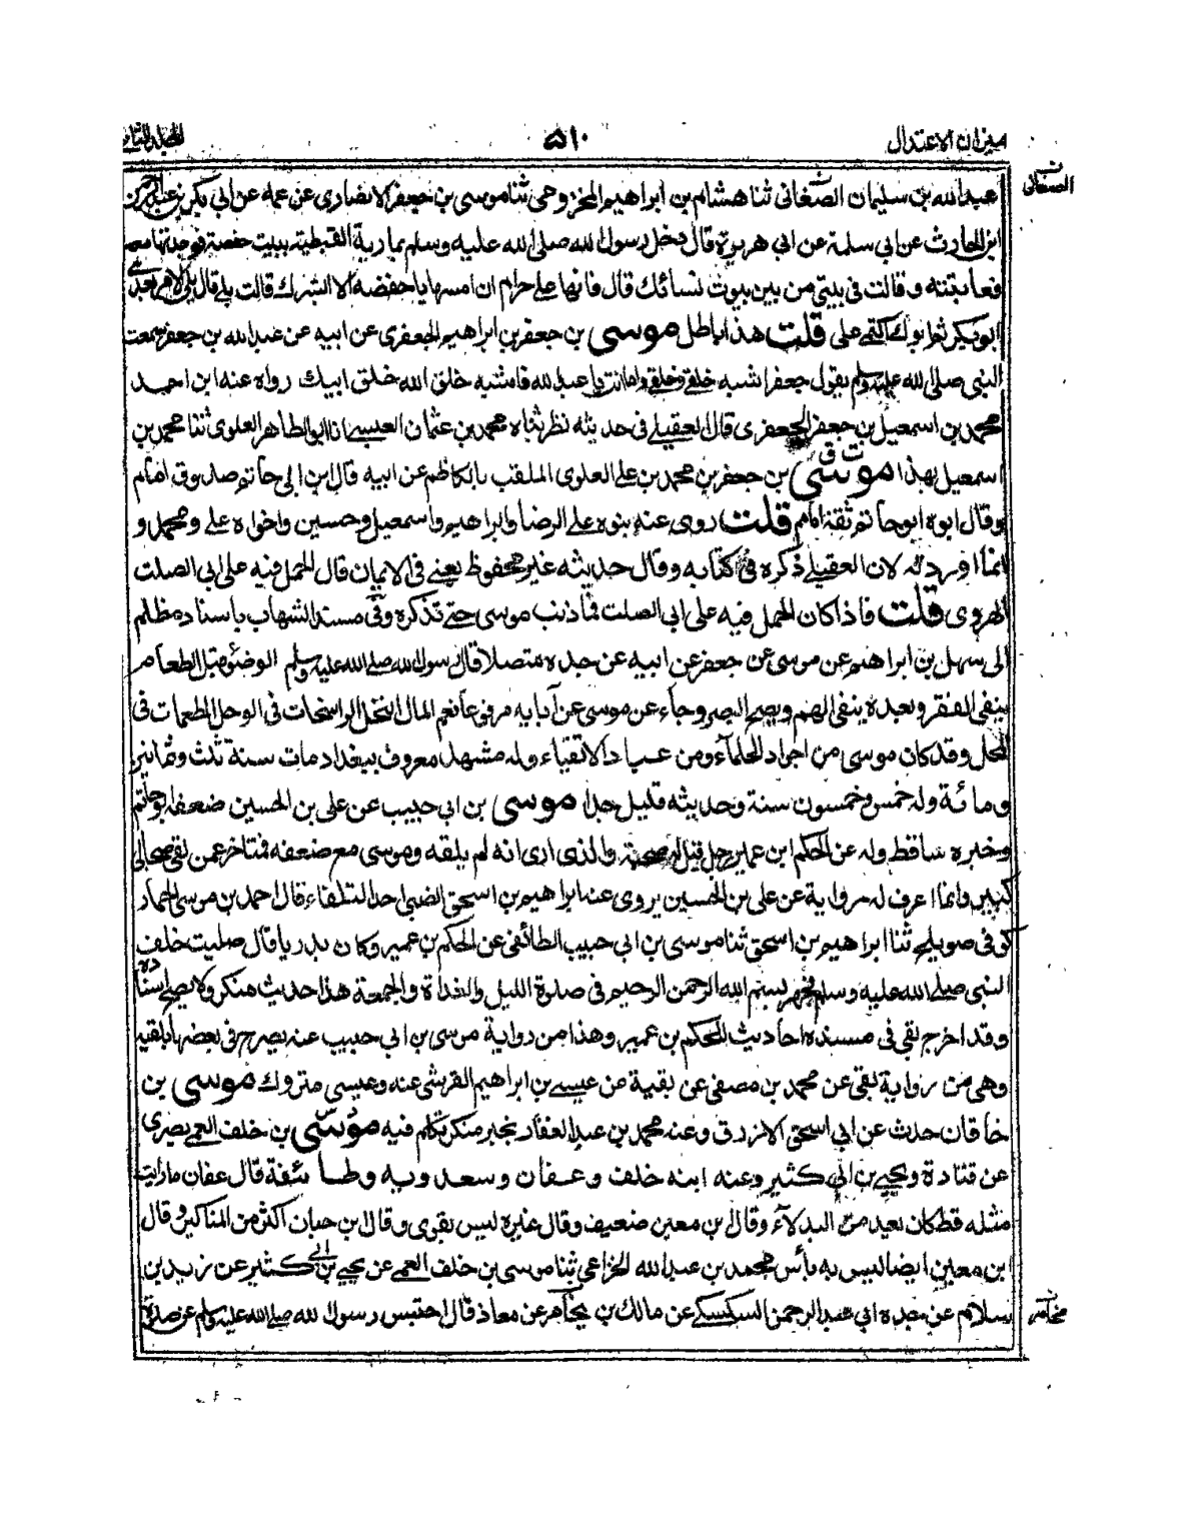 ميزان الاعتدال ٥١٠ المجلد الثاني
الصنعاني
عبد الله بن سليمان الصنعاني ثنا هشام بن ابراهيم المخزومي ثنا موسى بن جعفر الانصاري عن عمه عن ابي بكر بن عبد الرحمن
ابن الحارث عن ابي سلمة عن ابي هريرة قال دخل رسول الله صلى الله عليه وسلم بمارية القبطية ببيت حفصة فوجدتها معه
فعاتبته وقالت في بيتي من بين بيوت نسائك قال فانها علي حرام ان امسها يا حفضة الا ابشرك قالت بلى قال يلي الامر بعدي
ابو بكر ثم ابوك اكتمي علي قلت هذا باطل موسى بن جعفر بن ابراهيم الجعفري عن ابيه عن عبد الله بن جعفر سمعت
النبي صلى الله عليه وسلم يقول جعفر اشبه خلقي وخلقي واما انت يا عبد الله فاشبه خلق الله خلق ابيك رواه عنه ابن احمد
محمد بن اسمعيل بن جعفر الجعفري قال العقيلي في حديثه نظر ثناه محمد بن عثمان العبسي انا ابو الطاهر العلوي ثنا محمد بن
اسمعيل بهذا موسى ت ق بن جعفر بن محمد بن علي العلوي الملقب بالكاظم عن ابيه قال ابن ابي حاتم صدوق امام
وقال ابوه ابو حاتم ثقة امام قلت روى عنه بنوه علي الرضا وابراهيم واسمعيل وحسين واخواه علي ومحمد و
انما اوردته لان العقيلي ذكره في كتابه وقال حديثه غير محفوظ يعني في الايمان قال الحمل فيه على ابي الصلت
الهروي قلت فاذا كان الحمل فيه على ابي الصلت فما ذنب موسى حتى تذكره وفي مسند الشهاب باسناد مظلم
الى سهل بن ابراهيم عن موسى عن جعفر عن ابيه عن جده متصلا قال رسول الله صلى الله عليه وسلم الوضوء قبل الطعام
ينفي الفقر وبعده ينفي الهم ويصح البصر وجاء عن موسى عن آبايه مرفوعا نعم المال النخل الراسخات في الوحل المطعمات في
المحل وقد كان موسى من اجواد الحكماء ومن عباد الاتقياء وله مشهد معروف ببغداد مات سنة ثلث وثمانين
ومائة وله خمس وخمسون سنة وحديثه قليل جدا موسى بن ابي حبيب عن علي بن الحسين ضعفه ابو حاتم
وخبره ساقط وله عن الحكم ابن عمير رجل قيل له صحبة والذي ارى انه لم يلقه وموسى مع ضعفه فمتاخر عمن لقي صحابي
كبير وانما اعرف له رواية عن علي بن الحسين يروي عنه ابراهيم بن اسحق الضبي احد التلفاء قال احمد بن موسى الحمار
كوفي صويلح ثنا ابراهيم بن اسحق ثنا موسى بن ابي حبيب الطائفي عن الحكم بن عمير وكان بدريا قال صليت خلف
النبي صلى الله عليه وسلم فجهر بسم الله الرحمن الرحيم في صلوة الليل والغداة والجمعة هذا حديث منكر ولا يصح اسناده
وقد اخرج بقي في مسنده احاديث للحكم بن عمير وهذا من رواية موسى بن ابي حبيب عنه يصرح في بعضها بلقيه
وهي من رواية بقي عن محمد بن مصفى عن بقية عن عيسى بن ابراهيم القرشي عنه وعيسى متروك موسى بن
خاقان حدث عن ابي اسحق الازرق وعنه محمد بن عبد الغفار بخبر منكر تكلم فيه موسى بن خلف العمي بصري
عن قتادة ويحيى بن ابي كثير وعنه ابنه خلف وعفان وسعدويه وطائفة قال عفان ما رايت
مثله قط كان يعد من البدلاء وقال ابن معين ضعيف وقال غيره ليس بقوي وقال ابن حبان اكثر من المناكير وقال
ابن معين ايضا ليس به بأس محمد بن عبد الله الخزاعي ثنا موسى بن خلف العمي عن يحيى بن ابي كثير عن زيد بن
سلام عن جده ابي عبد الرحمن السكسكي عن مالك بن يخامر عن معاذ قال احتبس رسول الله صلى الله عليه وسلم عن صلاة
يخامر